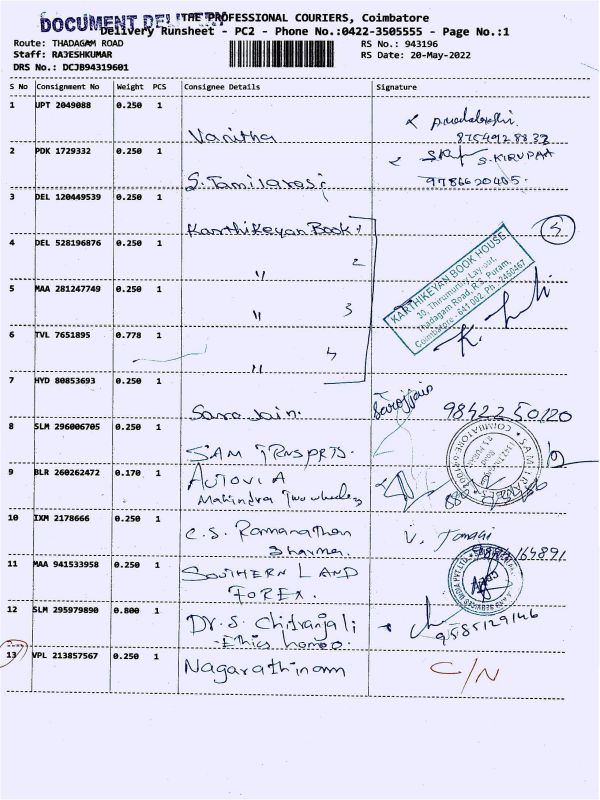 THE PROFESSIONAL COURIERS, Coimbatore
Delivery Runsheet - PC2 - Phone No.:0422-3505555 - Page No.:1
Route: THADAGAM ROAD RS No.: 943196
Staff: RAJESHKUMAR RS Date: 20-May-2022
DRS No.: DCJB94319601
S No Consignment No Weight PCS Consignee Details Signature
1 UPT 2049088 0.250 1 Vanitha
2 PDK 1729332 0.250 1 S. Tamilarasi S. KIRUPAA
3 DEL 120449539 0.250 1 Karthikeyan Book 1 5
4 DEL 528196876 0.250 1 " 2
5 MAA 281247749 0.250 1 " 3
KARTHIKEYAN BOOK HOUSE
30, Thirumurthy Lay-out,
Thadagam Road, R.S. Puram,
Coimbatore - 641 002 Ph : 2460467
6 TVL 7651895 0.778 1 " 4
7 HYD 80853693 0.250 1 Saro Jain. Sarojjain 98422 50120
8 SLM 296006705 0.250 1 SAM TRNSPRTS.
9 BLR 260262472 0.170 1 AUTOVIA
Mahindra Two wheeler
10 IXM 2178666 0.250 1 C.S. Ramanathan
Sharma.
11 MAA 941533958 0.250 1 SOUTHERN LAND
FOREX.
12 SLM 295979890 0.800 1 Dr. S. Chitranjali
Ethics homeo 9585129146
13 VPL 213857567 0.250 1 Nagarathinam C/N